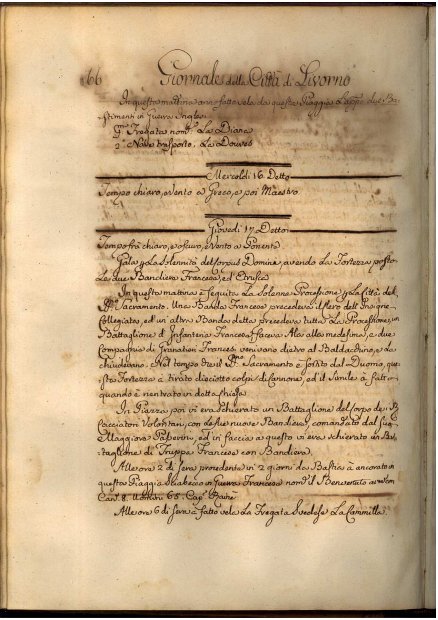 66 Giornale della Città di Livorno
In questa mattina anno fatto vela da questa Piaggia L'app. due Ba-
stimenti in guerra Inglesi
Fregata nom. La Diana
2. Nave trasporto, La Douvres
Mercoldi 16. Detto
Tempo chiaro, e vento a Greco, e poi Maestro
Giovedi 17. Detto
Tempo frà chiaro, e oscuro, e Vento a Ponente
Gala La Solennità del Corpus Domini, avendo La Fortezza posto
Le due Bandiere Francese, ed Etrusca
In questa mattina è seguita La Solenne Processione La Città del
SS. Sacramento. Una Banda Francese precedeva il Clero dell'Insigne
Collegiata, ed un altra Banda detta precedeva tutta La Processione, un
Battaglione d'Infanteria Francese faceva Ala alla medesima, e due
Compagnie di Granatieri Francesi venivano dietro al Baldacchino, e La
chiudevano. Nel tempo che il SS. Sacramento è sortito dal Duomo, que-
sta Fortezza à tirato diciotto colpi di Cannone, ed il simile à fatto
quando è rientrato in detta Chiesa
In Piazza poi vi era schierato un Battaglione del Corpo de
Cacciatori Volontari, con le sue nuove Bandiere, comandato dal suo
Maggiore Paberini, ed in faccia a questo vi era schierato un Bat-
taglione di Truppa Francese con Bandiera.
Alle ore 2 di sera procedente in 2 giorni da Bastia à ancorato in
questa Piaggia Sciabecco in guerra Francese nom. il Benvenuto
Can. 8. Uomini 65. Cap.
Alle ore 6 di sera à fatto vela La Fregata Svedese La Cammilla.